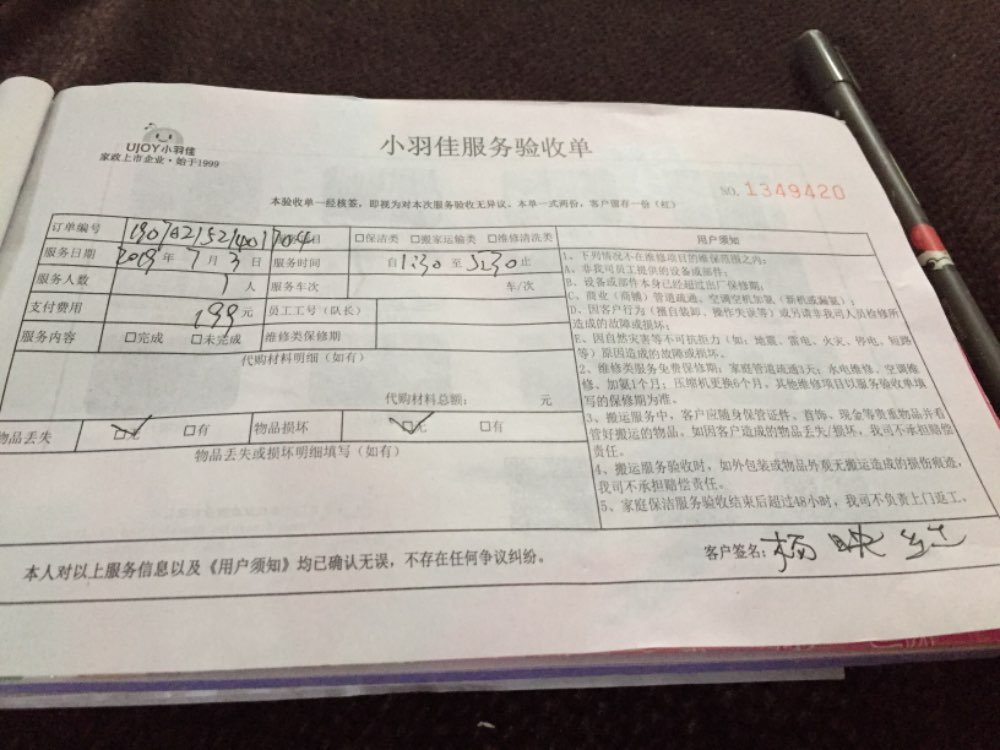 UJOY小羽佳
家政上市企业·始于1999
小羽佳服务验收单
NO. 1349420
本验收单一经核签，即视为对本次服务验收无异议。本单一式两份，客户留存一份（红）
订单编号 项目 □保洁类 □搬家运输类 □维修清洗类
服务日期 2019年7月3日 服务时间 自1:30至5:30止
服务人数 1人 服务车次 车/次
支付费用 199元 员工工号（队长）
服务内容 □完成 □未完成 维修类保修期
代购材料明细（如有）
代购材料总额： 元
物品丢失 □无 □有 物品损坏 □无 □有
物品丢失或损坏明细填写（如有）
用户须知
1、下列情况不在维修项目的维保范围之内：
A、非我司员工提供的设备或部件；
B、设备或部件本身已经超过出厂保修期；
C、商业（商铺）管道疏通、空调空机加氨（新机或漏氨）；
D、因客户行为（擅自装卸、操作失误等）或另请非我司人员检修所
造成的故障或损坏；
E、因自然灾害等不可抗拒力（如：地震、雷电、火灾、停电、短路
等）原因造成的故障或损坏。
2、维修类服务免费保修期：家庭管道疏通3天；水电维修、空调维
修、加氨1个月；压缩机更换6个月，其他维修项目以服务验收单填
写的保修期为准。
3、搬运服务中，客户应随身保管证件、首饰、现金等贵重物品并看
管好搬运的物品，如因客户造成的物品丢失/损坏，我司不承担赔偿
责任。
4、搬运服务验收时，如外包装或物品外观无搬运造成的损伤痕迹，
我司不承担赔偿责任。
5、家庭保洁服务验收结束后超过48小时，我司不负责上门返工。
本人对以上服务信息以及《用户须知》均已确认无误，不存在任何争议纠纷。
客户签名：杨映红